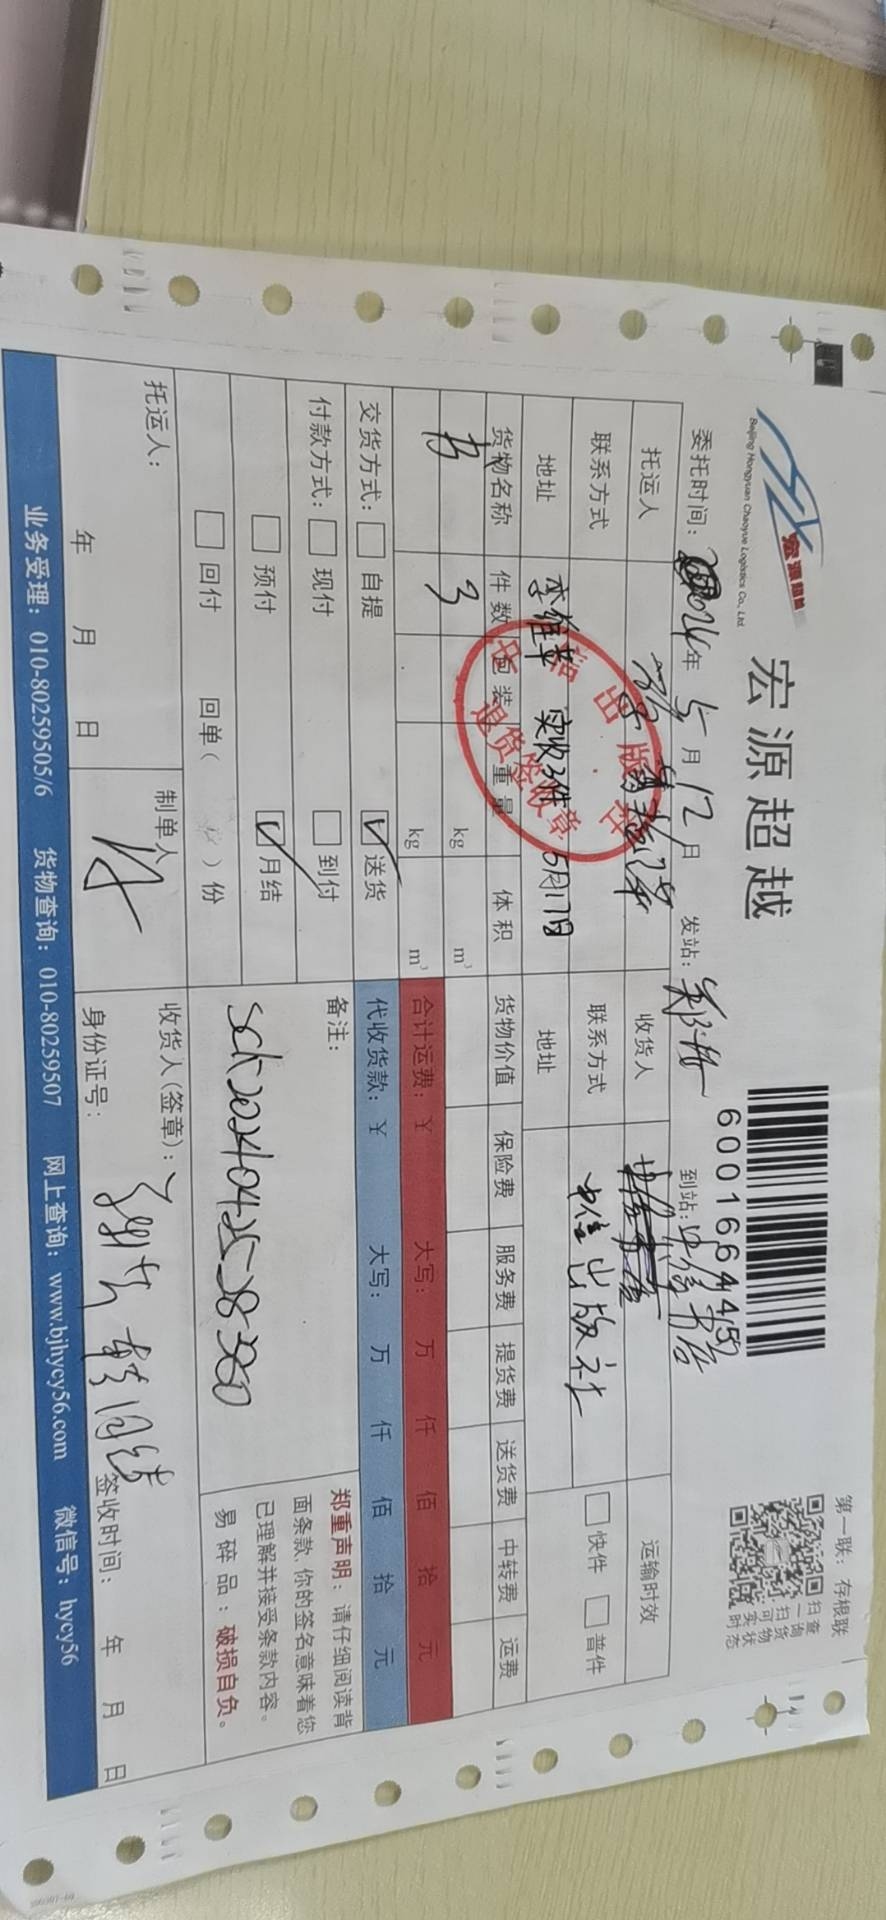 宏源超越
Beijing Hongyuan Chaoyue Logistics Co., Ltd
宏源超越
60016644151
第一联：存根联
扫一扫
查询货物
可实时状态
委托时间：2024年5月12日 发站：郑州 到站：中信书店
托运人 收货人 运输时效
联系方式 联系方式 中信出版社 快件 普件
地址 李维苹 实收3件 5月17日 地址
中信出版社
退货签收章
货物名称 件数 包装 重量 体积 货物价值 保险费 服务费 提货费 送货费 中转费 运费
书 3 kg m³
kg m³ 合计运费：¥ 大写： 万 仟 佰 拾 元
交货方式： 自提 送货 代收货款：¥ 大写： 万 仟 佰 拾 元
付款方式： 现付 到付 备注：
预付 月结
回付 回单（ ）份
郑重声明：请仔细阅读背
面条款，你的签名意味着您
已理解并接受条款内容。
易碎品：破损自负。
托运人： 制单人 收货人(签章)：
年 月 日 身份证号： 签收时间： 年 月 日
业务受理：010-80259505/6 货物查询：010-80259507 网上查询：www.bjhycy56.com 微信号：hycy56